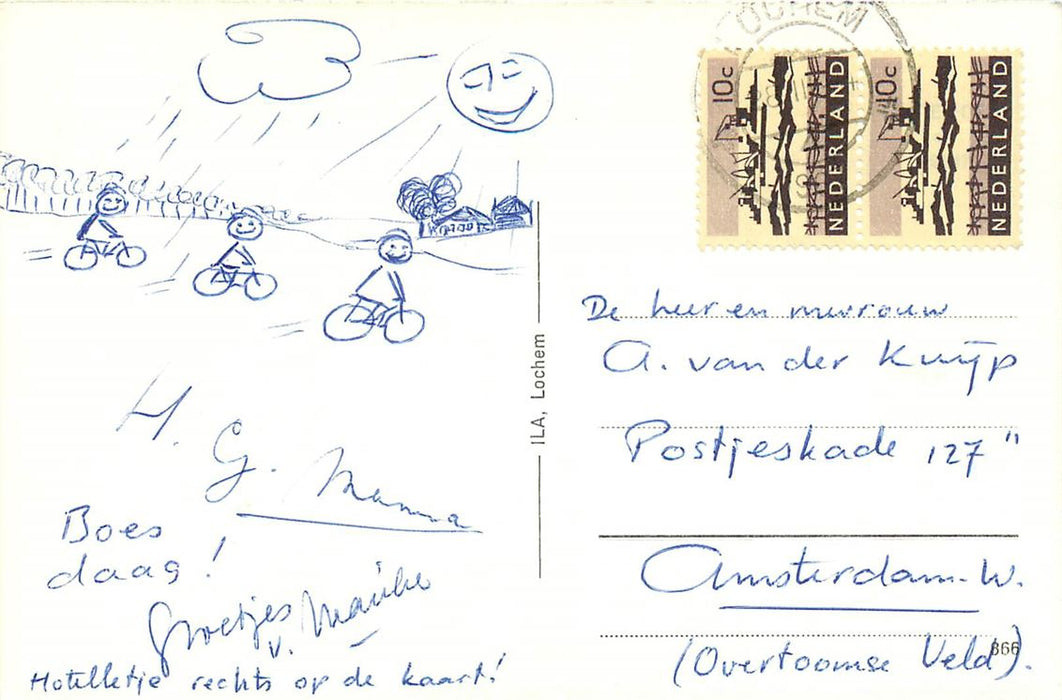 LOCHEM
10c
NEDERLAND
10c
NEDERLAND
De heer en mevrouw
A. van der Kuijp
Postjeskade 127 "
Amsterdam-W.
(Overtoomse Veld).
866
ILA, Lochem
H.
G. Mamma
Boes
daag!
Groetjes
v. Marijke
Hotelletje rechts op de kaart!